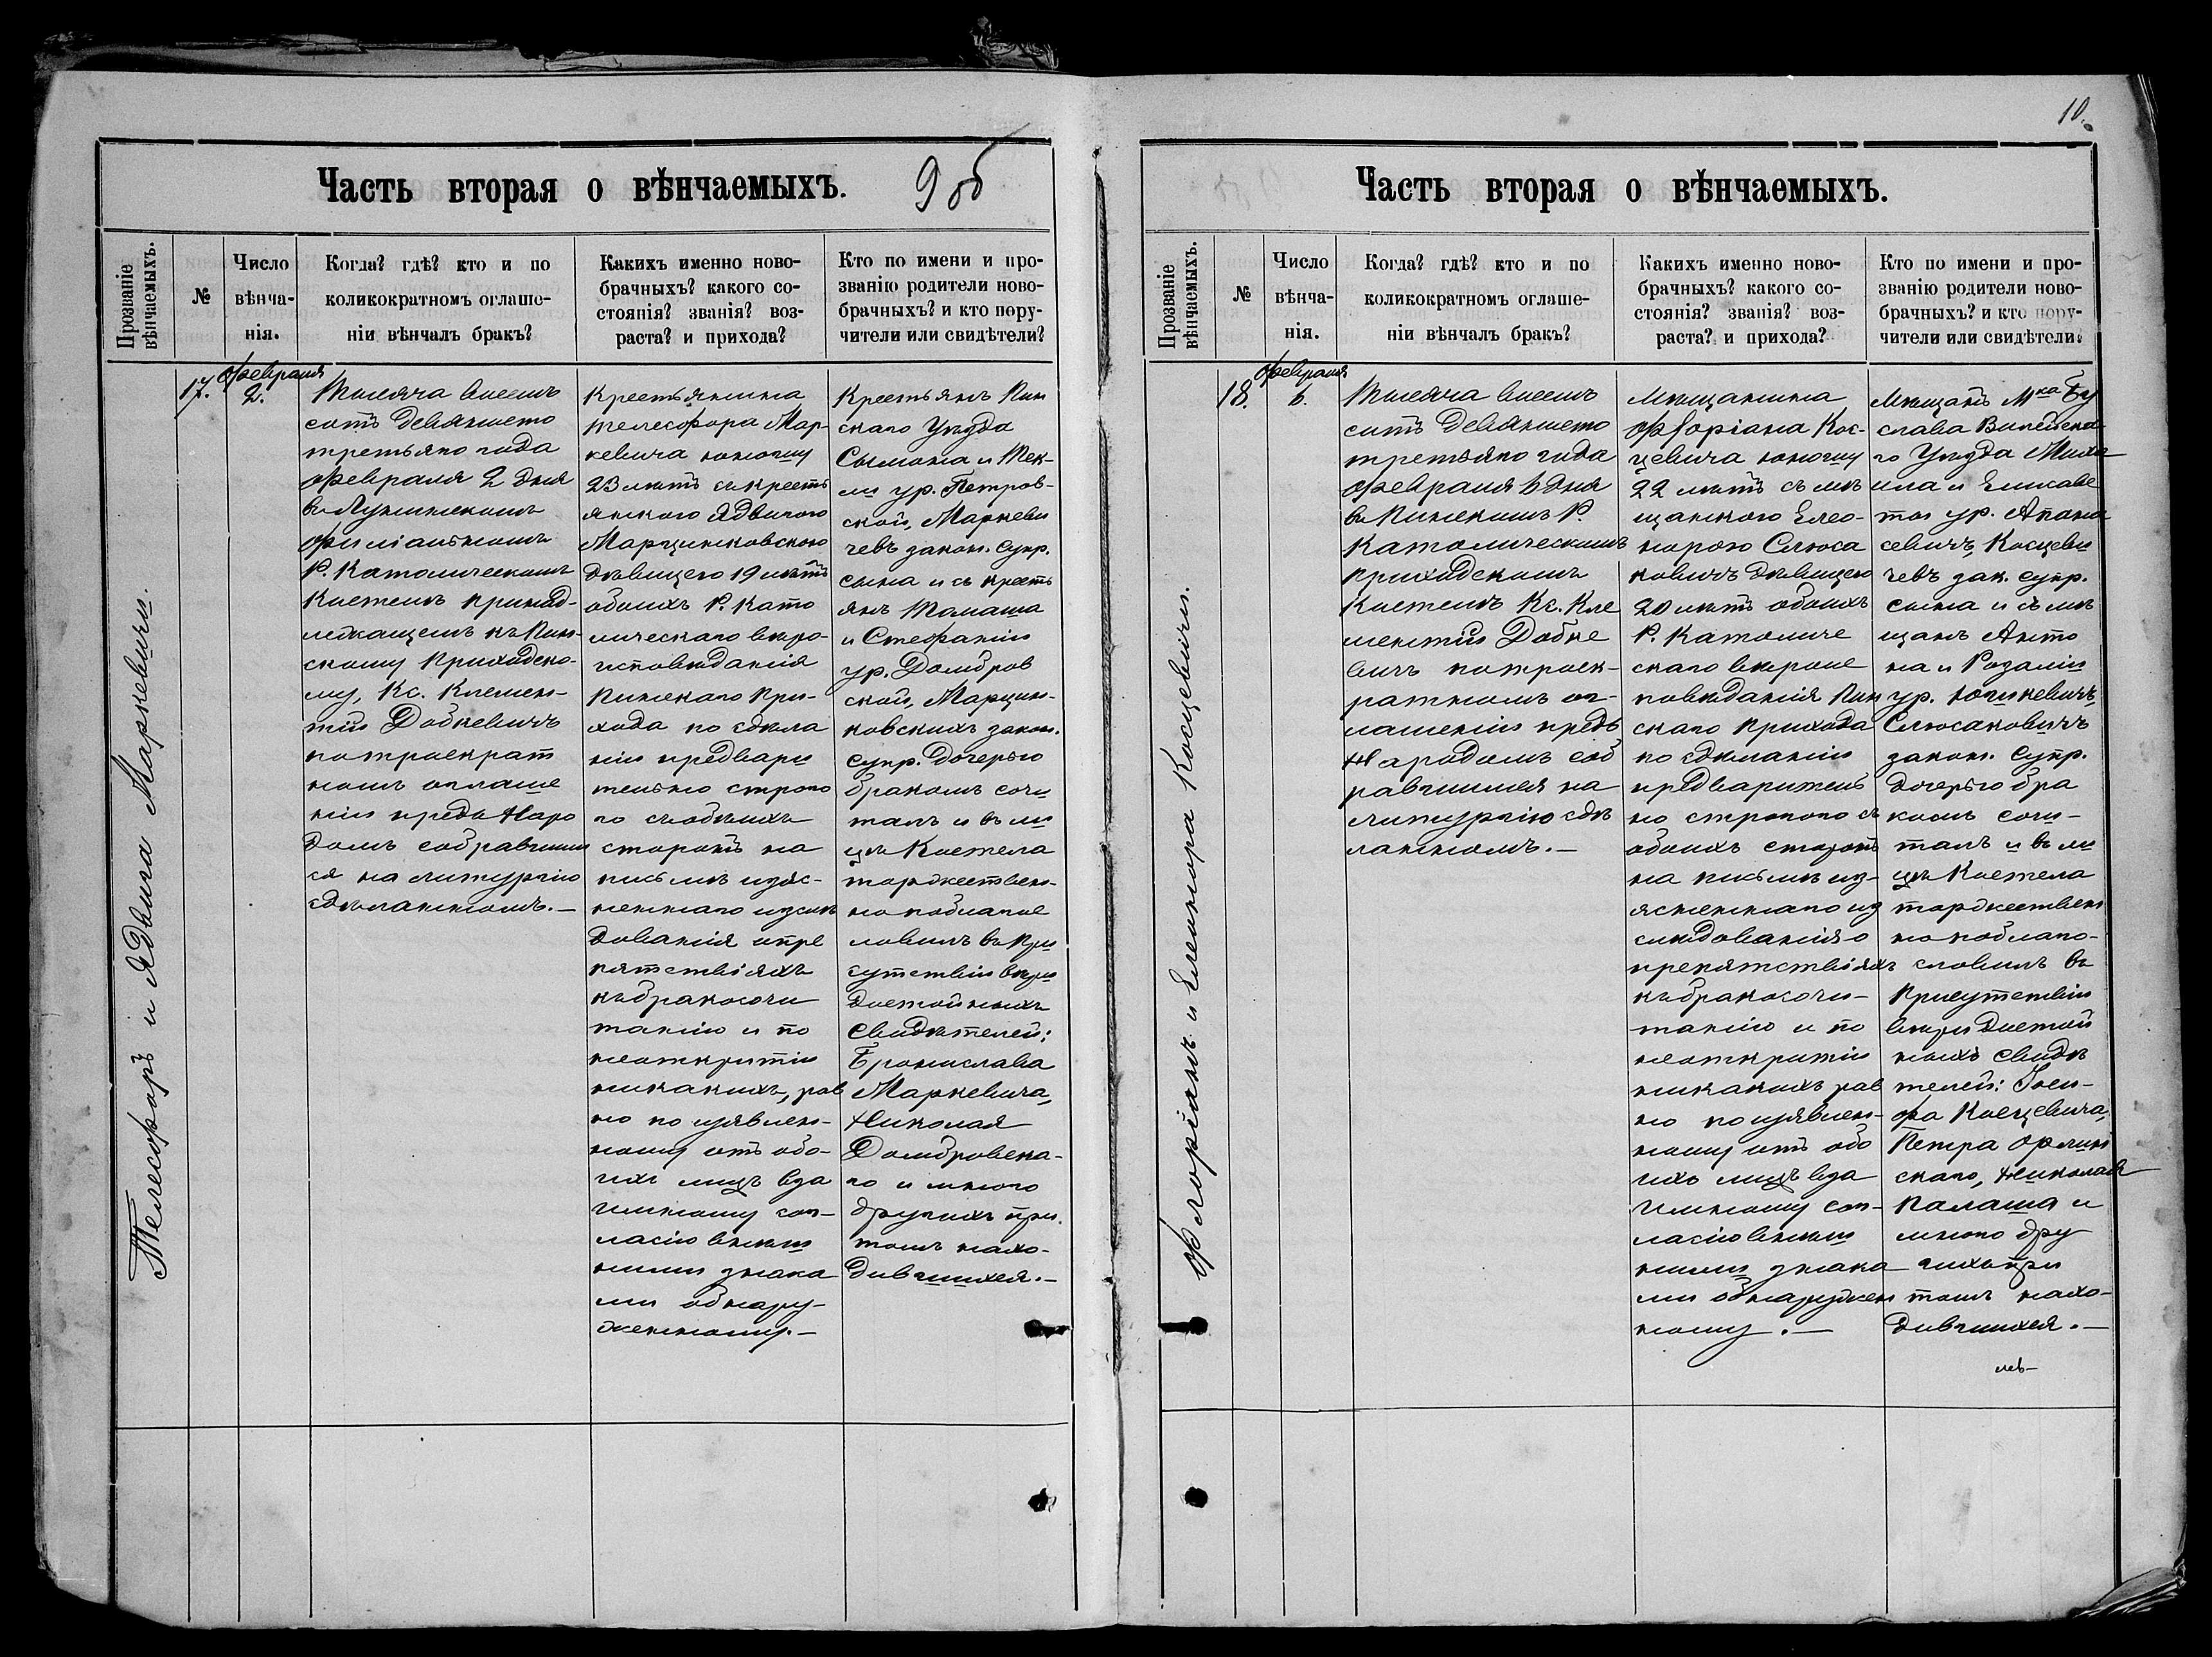 Часть вторая о вѣнчаемыхъ.
9 об
Прозваніе
вѣнчаемыхъ.
№
Число
вѣнча-
нія.
Когда? гдѣ? кто и по
коликократномъ оглаше-
ніи вѣнчалъ бракъ?
Какихъ именно ново-
брачныхъ? какого со-
стоянія? званія? воз-
раста? и прихода?
Кто по имени и про-
званію родители ново-
брачныхъ? и кто пору-
чители или свидѣтели?
Телесфоръ и Ядвига Маркевичи.
17.
Февраля
2.
Тысяча восемь
сотъ девяносто
третьяго года
Февраля 2 дня
въ
Филіальномъ
Р. Католическомъ
Костелѣ принад-
лежащемъ къ Пин-
скому Приходско-
му, Кс. Клемен-
тій Добкевичъ
по троекрат
номъ оглаше
ніи предъ Наро
домъ собравшим
ся на литургію
сдѣланномъ.—
Крестьянина
Телесфора Мар-
кевича юношу
23 лѣтъ съ кресть
янкою Ядвигою
Марцинковскою
дѣвицею 19 лѣтъ
обоихъ Р. Като
лическаго вѣро-
исповѣданія
Пинскаго При-
хода по сдѣла
ніи предвари
тельно строго
го съ обѣихъ
сторонъ на
письмѣ изъяс-
неннаго изслѣ
дованія о пре
пятствіяхъ
къ бракосоче
танію и по
неоткрытіи
никакихъ, рав
но по изъявлен-
ному отъ обо-
ихъ лицъ вза
имному сог-
ласію внѣш
ними знака
ми обнару-
женному.—
Крестьянъ Пин
скаго Уѣзда
Сымона и Тек-
ли ур. Петров-
ской, Маркеви
чевъ закон. супр.
сына и съ кресть
янъ Томаша
и Стефаніи
ур. Домбров
ской, Марцин-
ковскихъ закон.
супр. дочерью
бракомъ соче
талъ и въ ли
цѣ Костела
торжествен-
но поблагос
ловилъ въ при
сутствіи вѣро
достойныхъ
свидѣтелей:
Бронислава
Маркевича,
Николая
Домбровска-
го и много
другихъ при
томъ нахо-
дившихся.—
10.
Часть вторая о вѣнчаемыхъ.
Прозваніе
вѣнчаемыхъ.
№
Число
вѣнча-
нія.
Когда? гдѣ? кто и по
коликократномъ оглаше-
ніи вѣнчалъ бракъ?
Какихъ именно ново-
брачныхъ? какого со-
стоянія? званія? воз-
раста? и прихода?
Кто по имени и про-
званію родители ново-
брачныхъ? и кто пору-
чители или свидѣтели?
Флоріанъ и Елеонора Косцевичи.
18.
Февраля
6.
Тысяча восемь
сотъ девяносто
третьяго года
Февраля 6 дня
въ Пинскомъ Р.
Католическомъ
Приходскомъ
Костелѣ Кс. Кле
ментій Добке
вичъ по троек-
ратномъ ог-
лашеніи предъ
Народомъ соб
равшимся на
литургію сдѣ
ланномъ.—
Мѣщанина
Флоріана Кос-
цевича юношу
22 лѣтъ съ мѣ
щанкою Елео-
норою Слюса
ковичъ дѣвицею
20 лѣтъ обоихъ
Р. Католиче
скаго вѣроис
повѣданія Пин
скаго Прихода
по сдѣланіи
предваритель
но строгого съ
обоихъ сторонъ
на письмѣ изъ-
ясненнаго из
слѣдованія о
препятствіяхъ
къ бракосоче-
танію и по
неоткрытіи
никакихъ рав
но по изъявлен-
ному отъ обо
ихъ лицъ вза
имному сог-
ласію внѣш
ними знака
ми обнаружен
ному.—
Мѣщанъ Мка
слава Вилейска
го Уѣзда Миха
ила и Елисаве
ты ур. Апана
севичъ, Косцеви
чевъ зак. супр.
сына и съ мѣ
щанъ Анто
на и Розаліи
ур. Юшкевичъ,
Слюсаковичъ
закон. супр.
дочерью бра
комъ соче-
талъ и въ ли
цѣ Костела
торжествен
но поблаго-
словилъ въ
присутствіи
вѣродостой
ныхъ свидѣ
телей: Іоси-
фа Косцевича,
Петра
скаго, Николая
Палаша и
много дру
гихъ при
томъ нахо-
дившихся.—